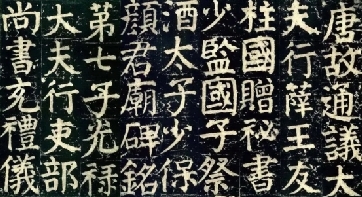 唐故通議大
夫行薛王友
柱國贈祕書
少監國子祭
酒太子少保
顏君廟碑銘
第七子光祿
大夫行吏部
尚書充禮儀